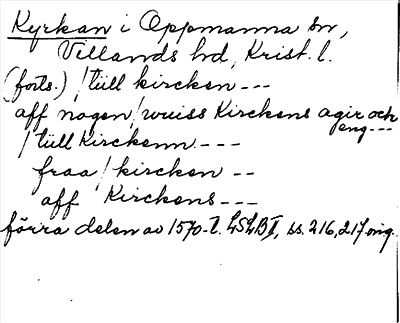 Kyrkan i Oppmanna sn,
Villands hd, Krist. l.
(forts.) / tüll kircken ---
aff nogen / wuiss Kirckens agir och eng ---
/ tüll Kirckenn ---
fraa / kircken --
aff Kirckens ---
förra delen av 1570-t. LSLB II, ss. 216, 217 orig.